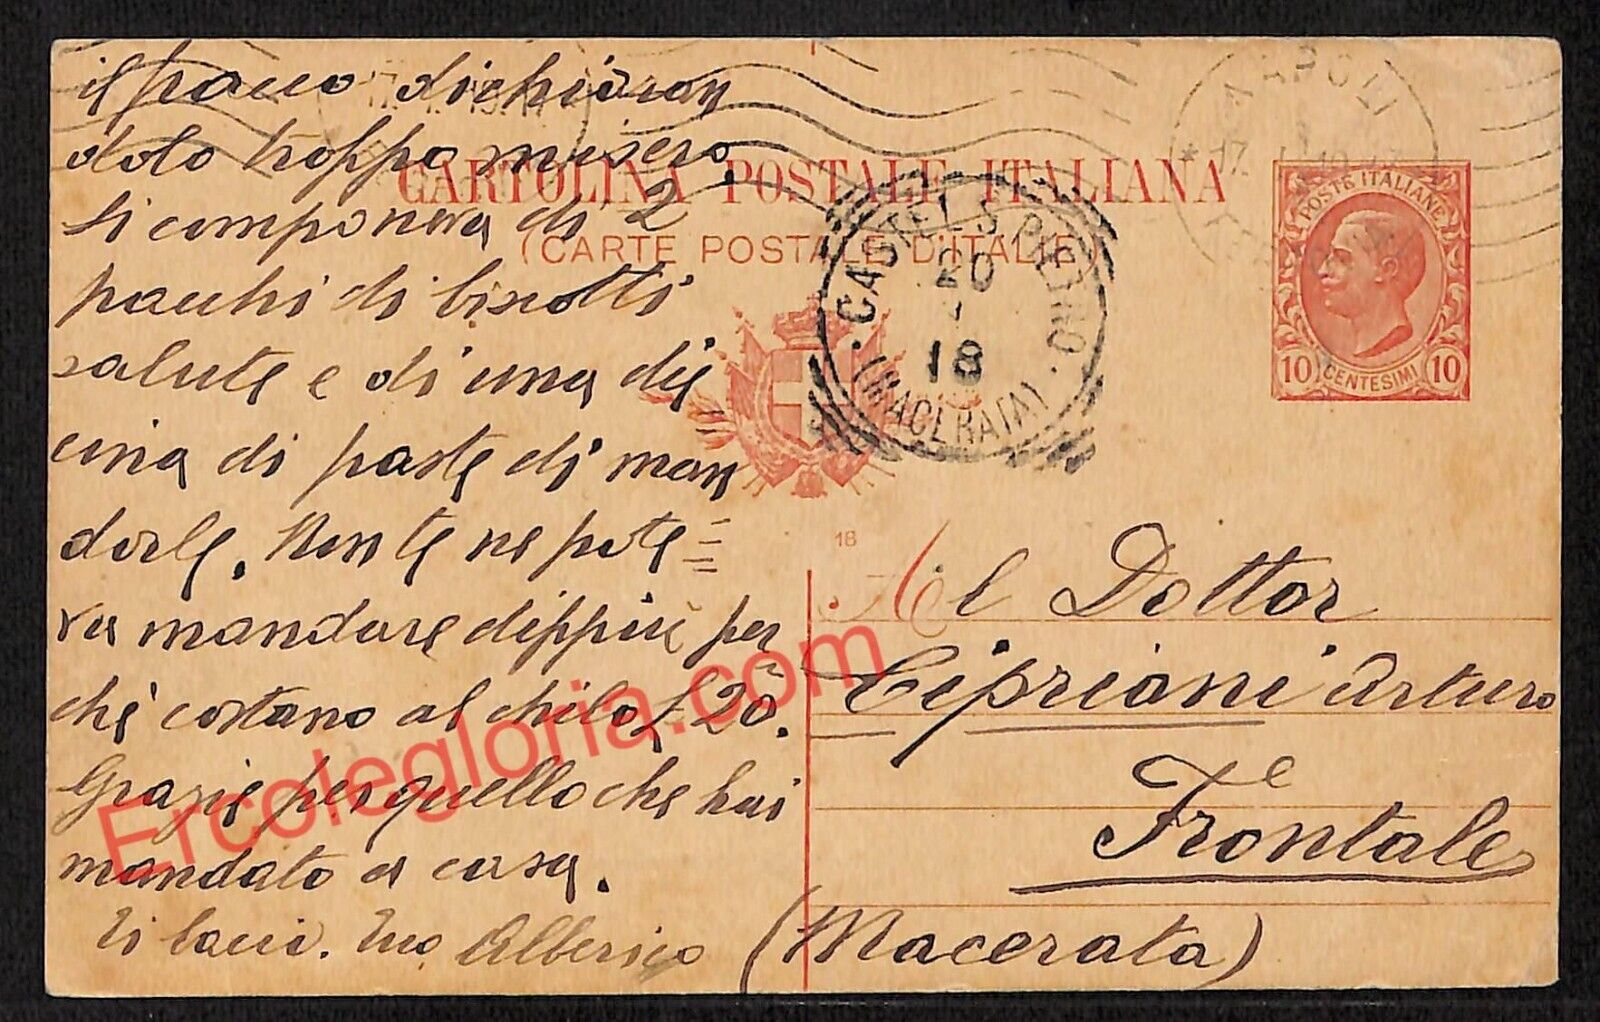 il pacco dichiaran
dolo troppo misero.
Si componeva di 2
pacchi di biscotti
salute e di una die
cina di paste di man
dorle. Non te ne pote=
va mandare dippiù per
chè costano al chilo £ 20.
Grazie per quello che hai
mandato a casa.
Ti baci. Tuo Alberico
CARTOLINA POSTALE ITALIANA
(CARTE POSTALE D'ITALIE)
NAPOLI
17
CASTEL S. PIETRO
20
1
18
(MACERATA)
POSTE ITALIANE
10 CENTESIMI 10
18
Al Dottor
Cipriani Arturo
Frontale
(Macerata)
Ercolegloria.com